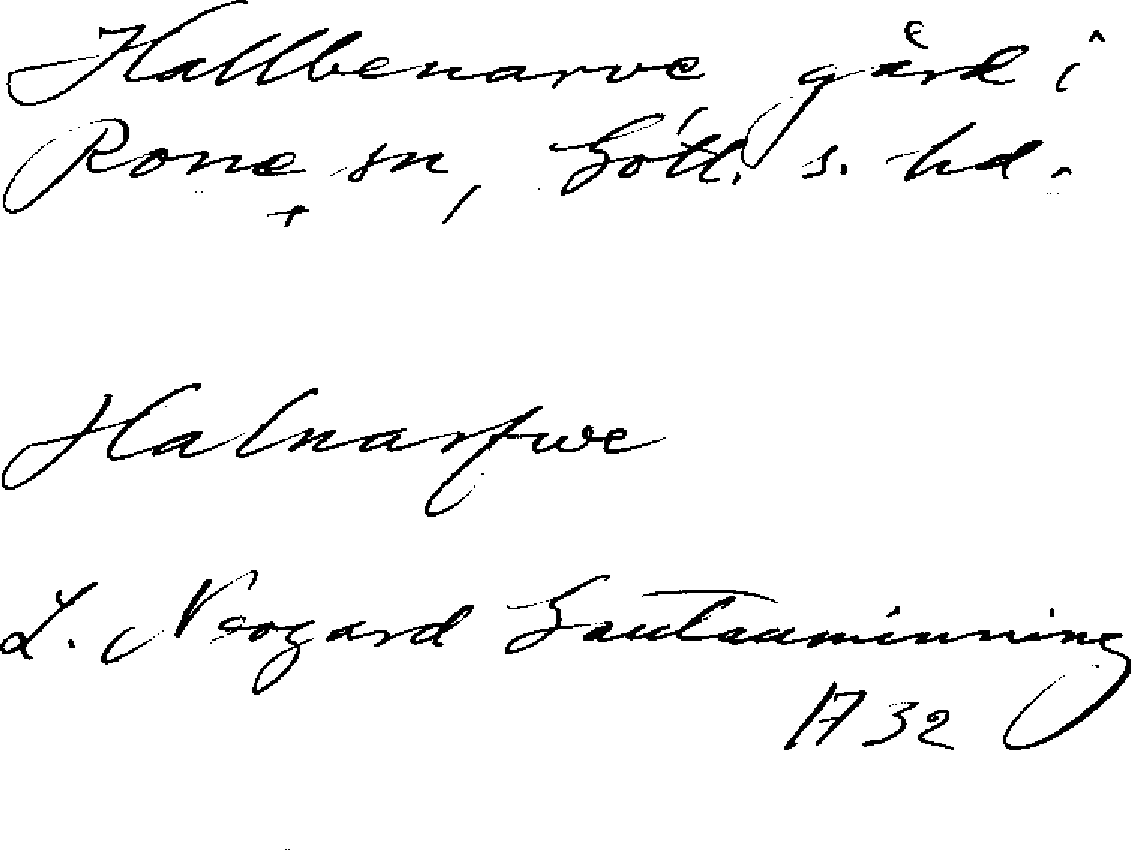 Hallbenarve gård i
Rone sn, Gotl. s. hd.
+
Halnarfwe
L. Neogard Gautaaminning
1732